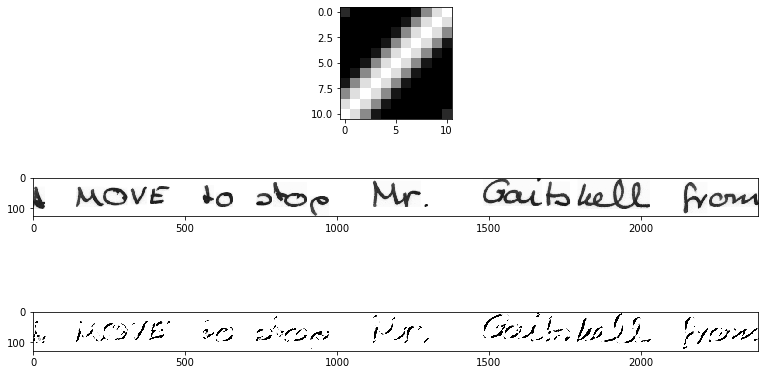 0.0
2.5
5.0
7.5
10.0
0 5 10
0
100
A MOVE to stop Mr. Gaitskell from
0 500 1000 1500 2000
0
100
A MOVE to stop Mr. Gaitskell from
0 500 1000 1500 2000